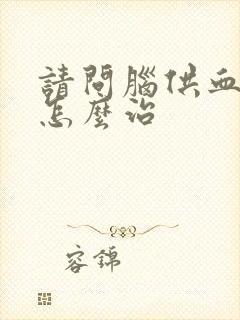 請問腦供血
怎麼治
容錦